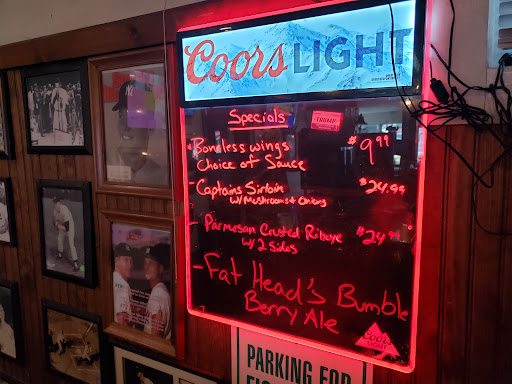 Coors LIGHT
Specials
TRUMP
Boneless wings $9.99
Choice of Sauce
- Captains Sirloin $24.99
w/ Mushrooms & Onions
- Parmesan Crusted Ribeye $24.99
w/ 2 Sides
- Fat Head's Bumble
Berry Ale
Coors
LIGHT
PARKING FOR